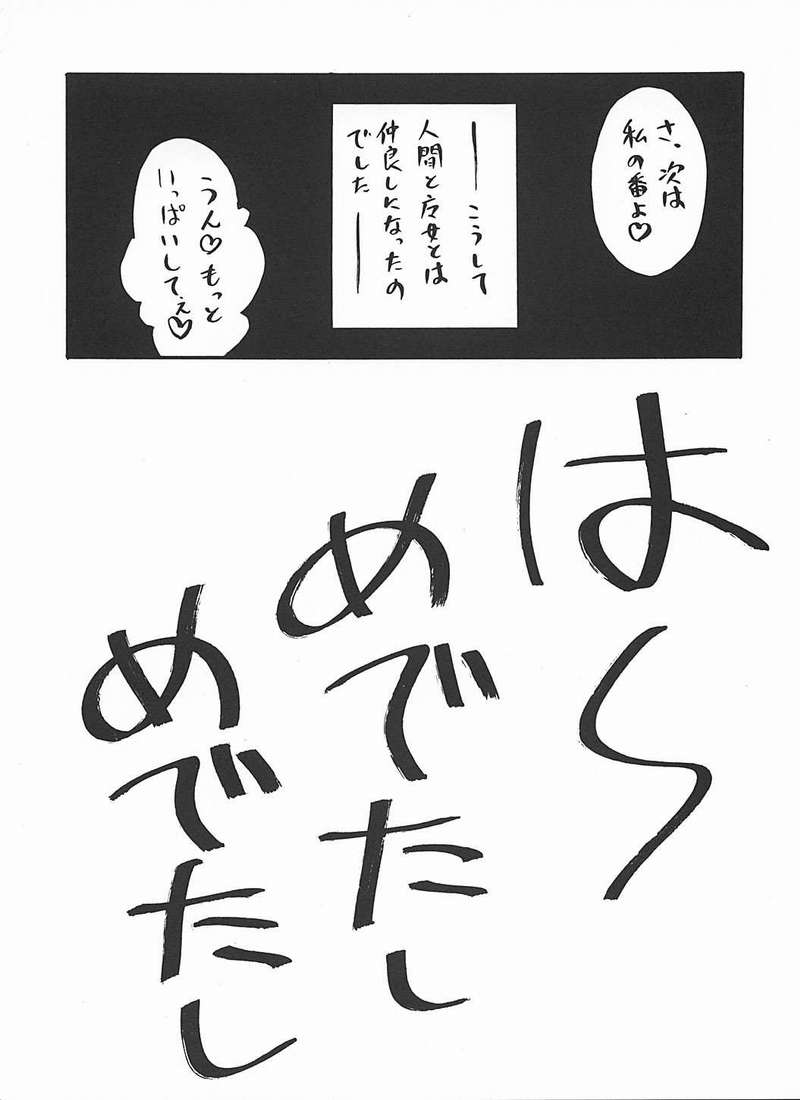 さ、次は
私の番よ♡
――こうして
人間と魔女とは
仲良しになったの
でした――
うん♡もっと
いっぱいしてぇ♡
は〜
めでたし
めでたし